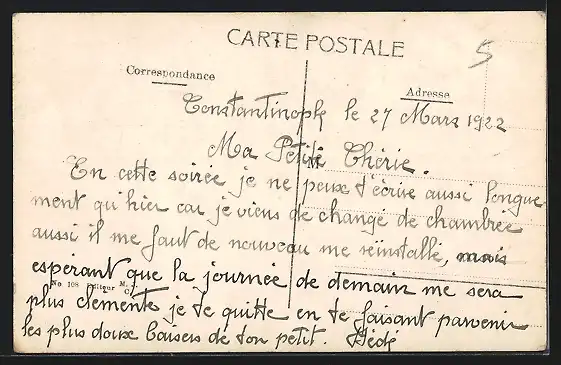 CARTE POSTALE
5
Correspondance
Adresse
Constantinople le 27 Mars 1922
Ma Petite Chérie.
M
En cette soirée je ne peux t'écrire aussi longue-
ment qu'hier car je viens de changé de chambrée
aussi il me faut de nouveau me réinstallé, mais
espérant que la journée de demain me sera
No 108 Editeur M.
plus clémente je te quitte en te faisant parvenir
les plus doux baisers de ton petit.